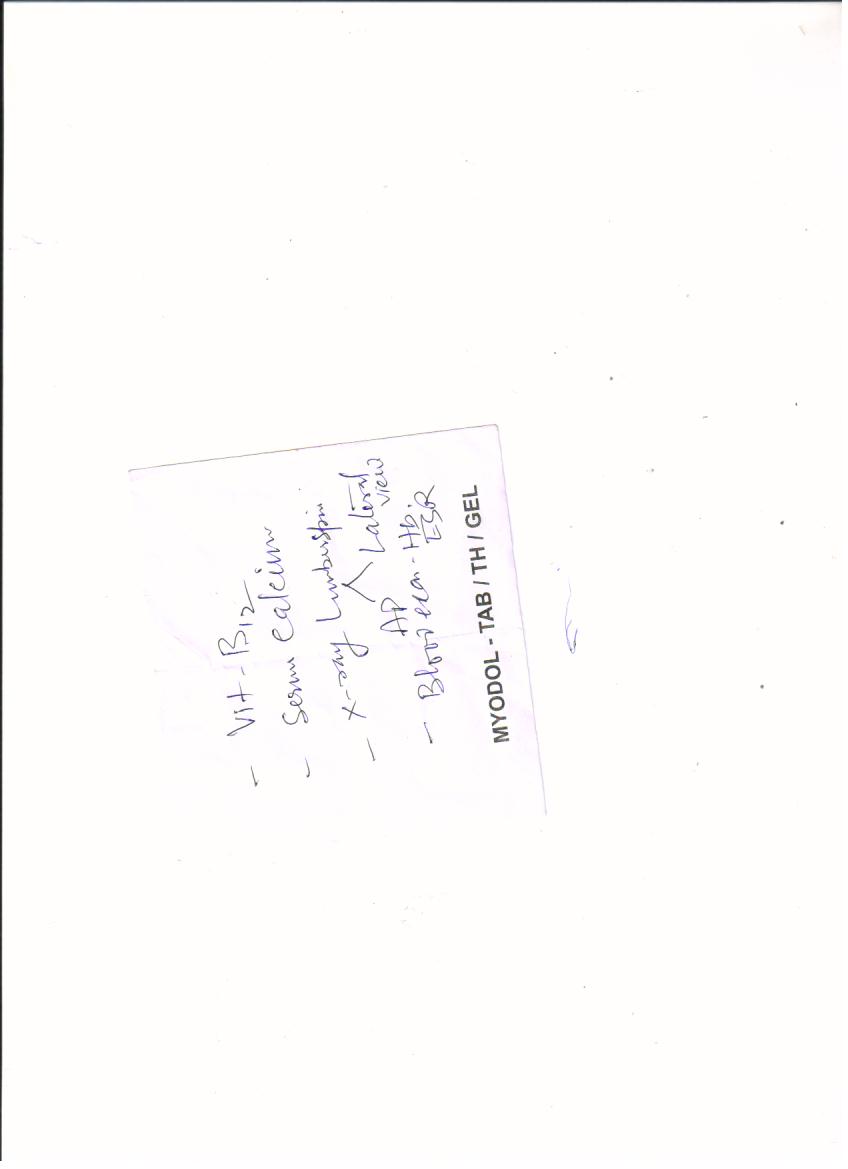 - Vit-B12
- Serum Calcium
- X-ray Lumberspin
AP Lateral view
- Blood exan-Hb.
ESR
MYODOL - TAB / TH / GEL